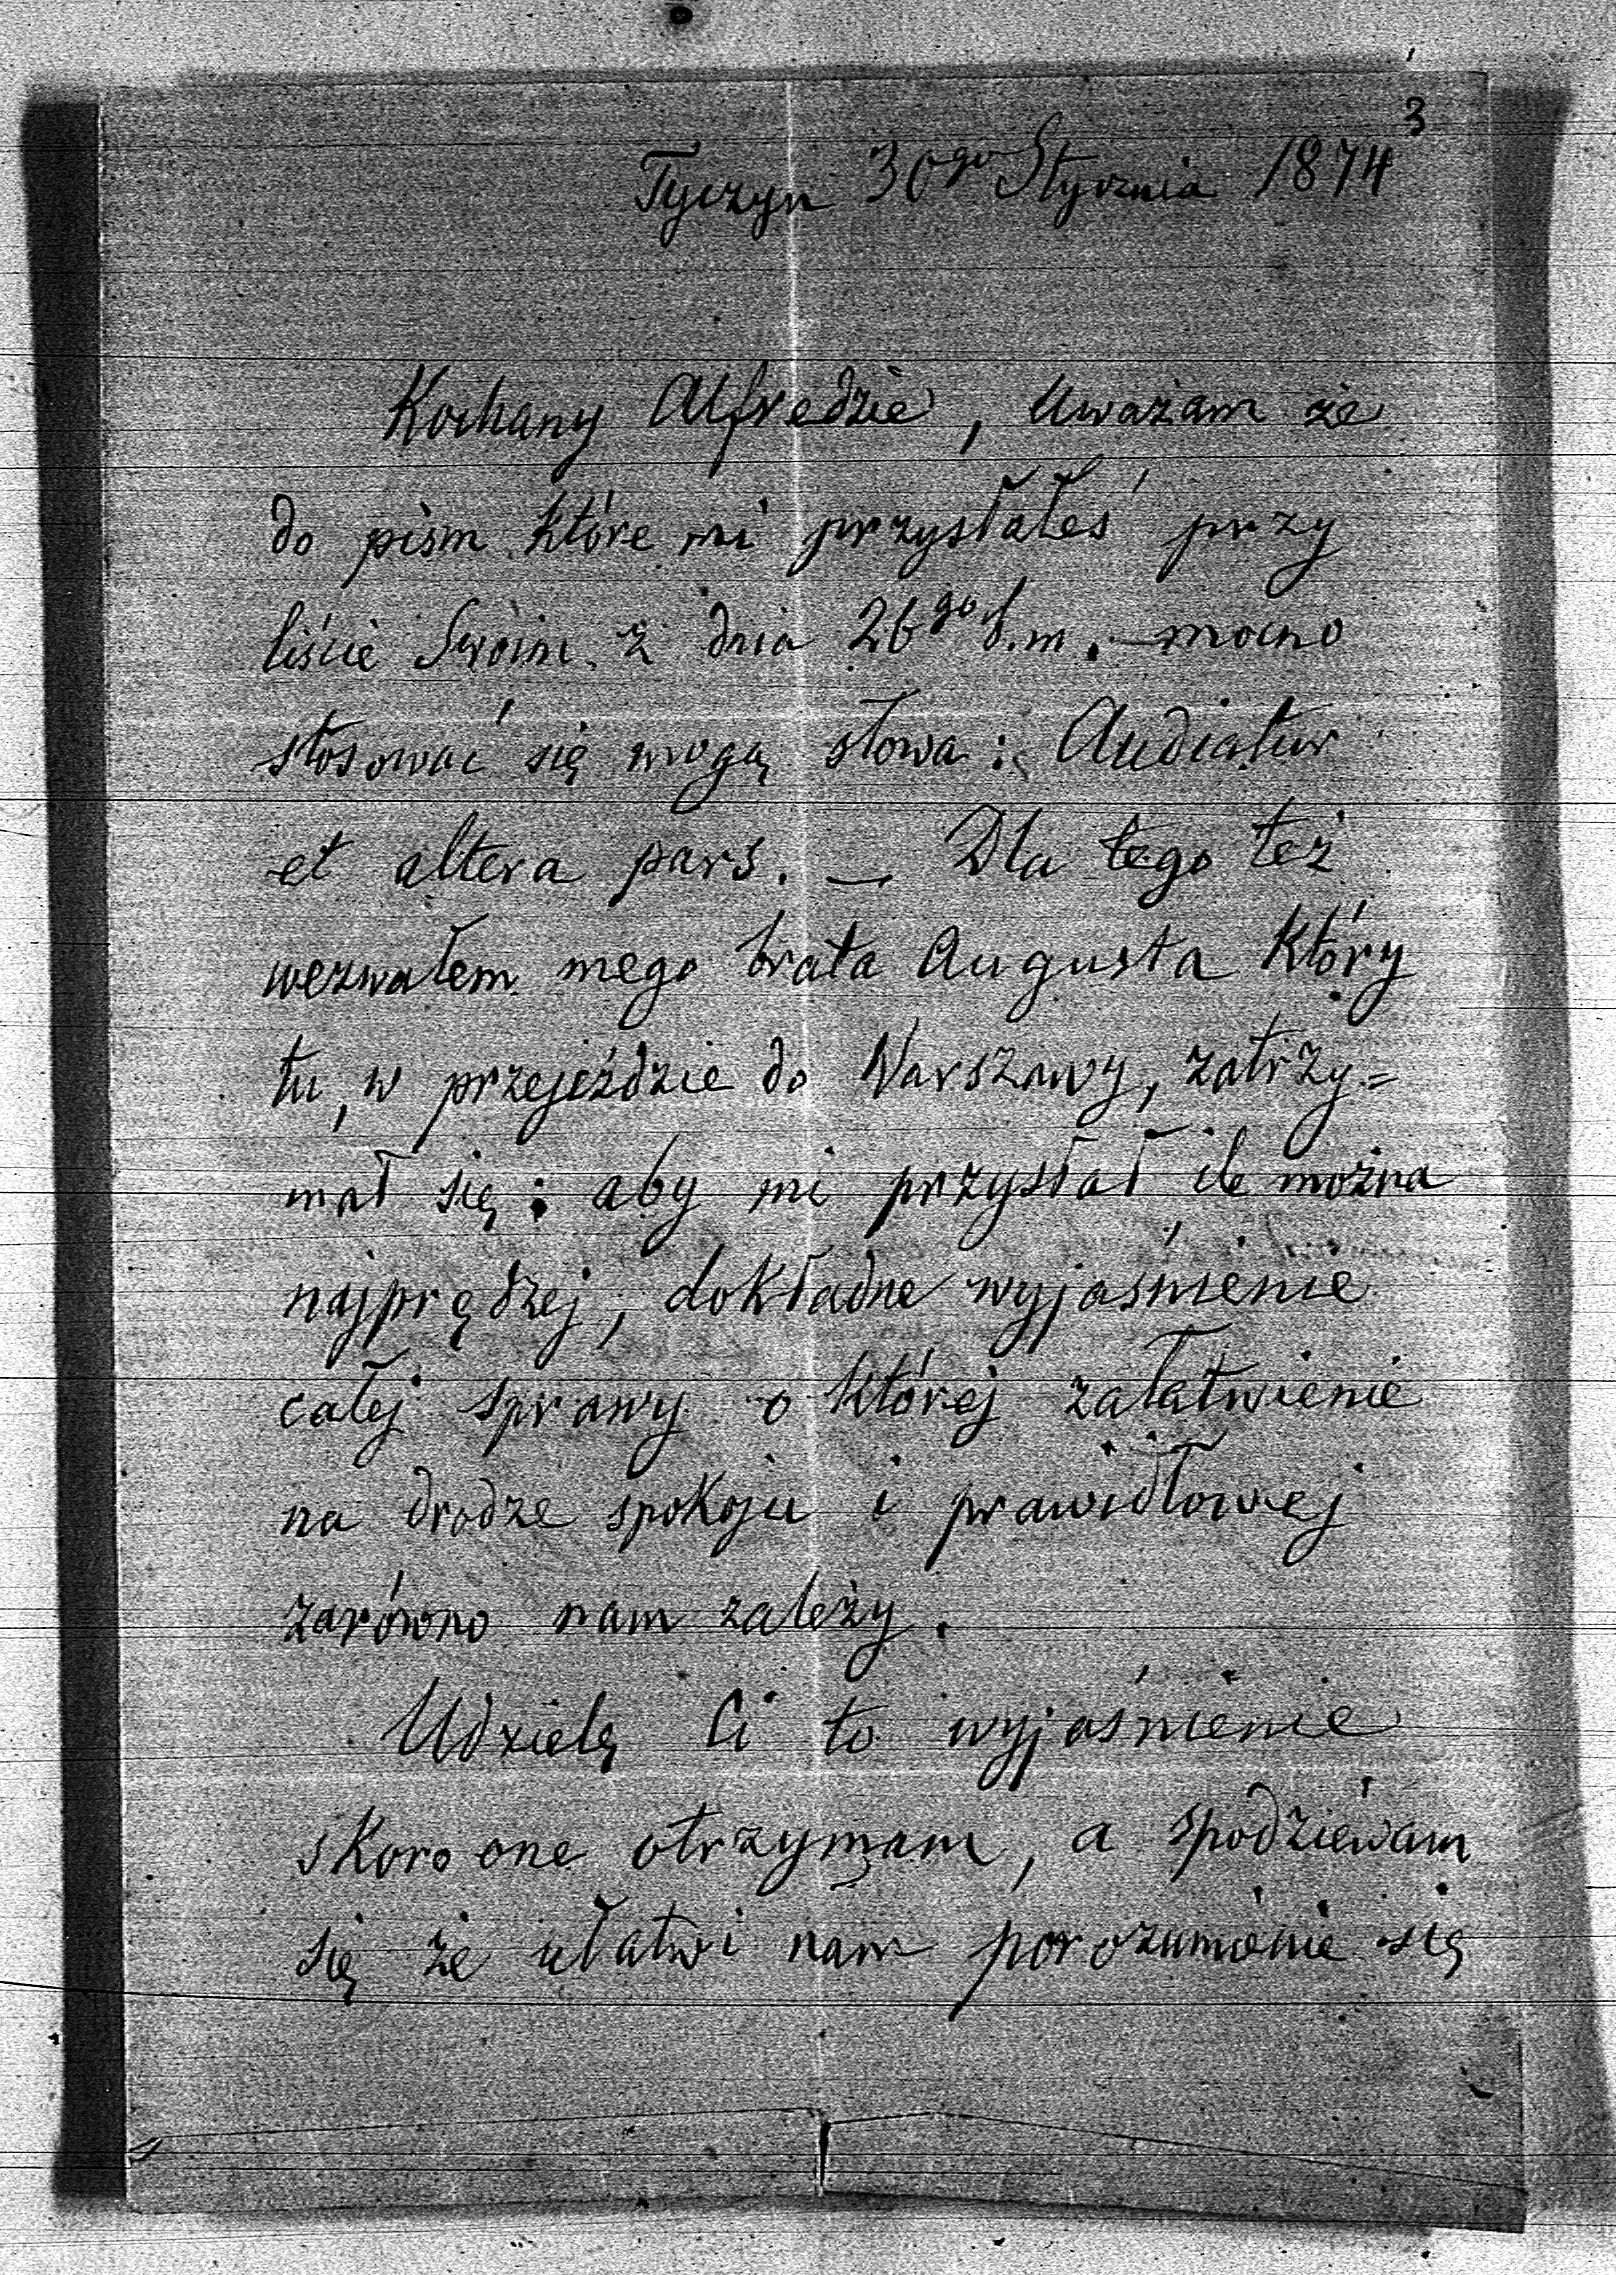 3
Tyczyn 30go Stycznia 1874
Kochany Alfredzie, Uważam że
do pism które mi przysłałeś przy
liście Swoim z dnia 26go b.m. mocno
stosować się mogą słowa: Audiatur
et altera pars. — Dla tego też
wezwałem mego brata Augusta który
tu, w przejeździe do Warszawy, zatrzy=
mał się: aby mi przysłał ile można
najprędzej, dokładne wyjaśnienie
całej sprawy o której załatwienie
na drodze spokoju i prawidłowej
zarówno nam zależy.
Udzielę Ci to wyjaśnienie
skoro one otrzymam, a spodziewam
się że ułatwi nam porozumienie się